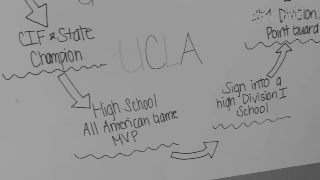 CIF & State
Champion
UCLA
High School
All American Game
MVP
Sign into a
high Division I
School
Division
Point Guard